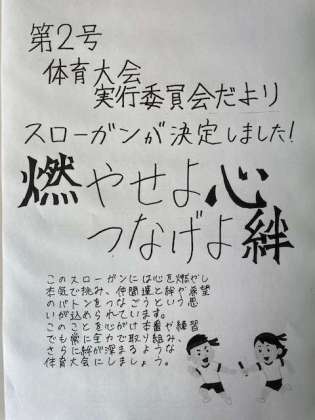 第2号
体育大会
実行委員会だより
スローガンが決定しました!
燃やせよ心
つなげよ絆
このスローガンには心を燃やし
本気で挑み、仲間達と絆や希望
のバトンをつなごうという思
いが込められています。
このことを心がけ本番や練習
でも常に全力で取り組み、
さらに絆が深まるような
体育大会にしましょう。